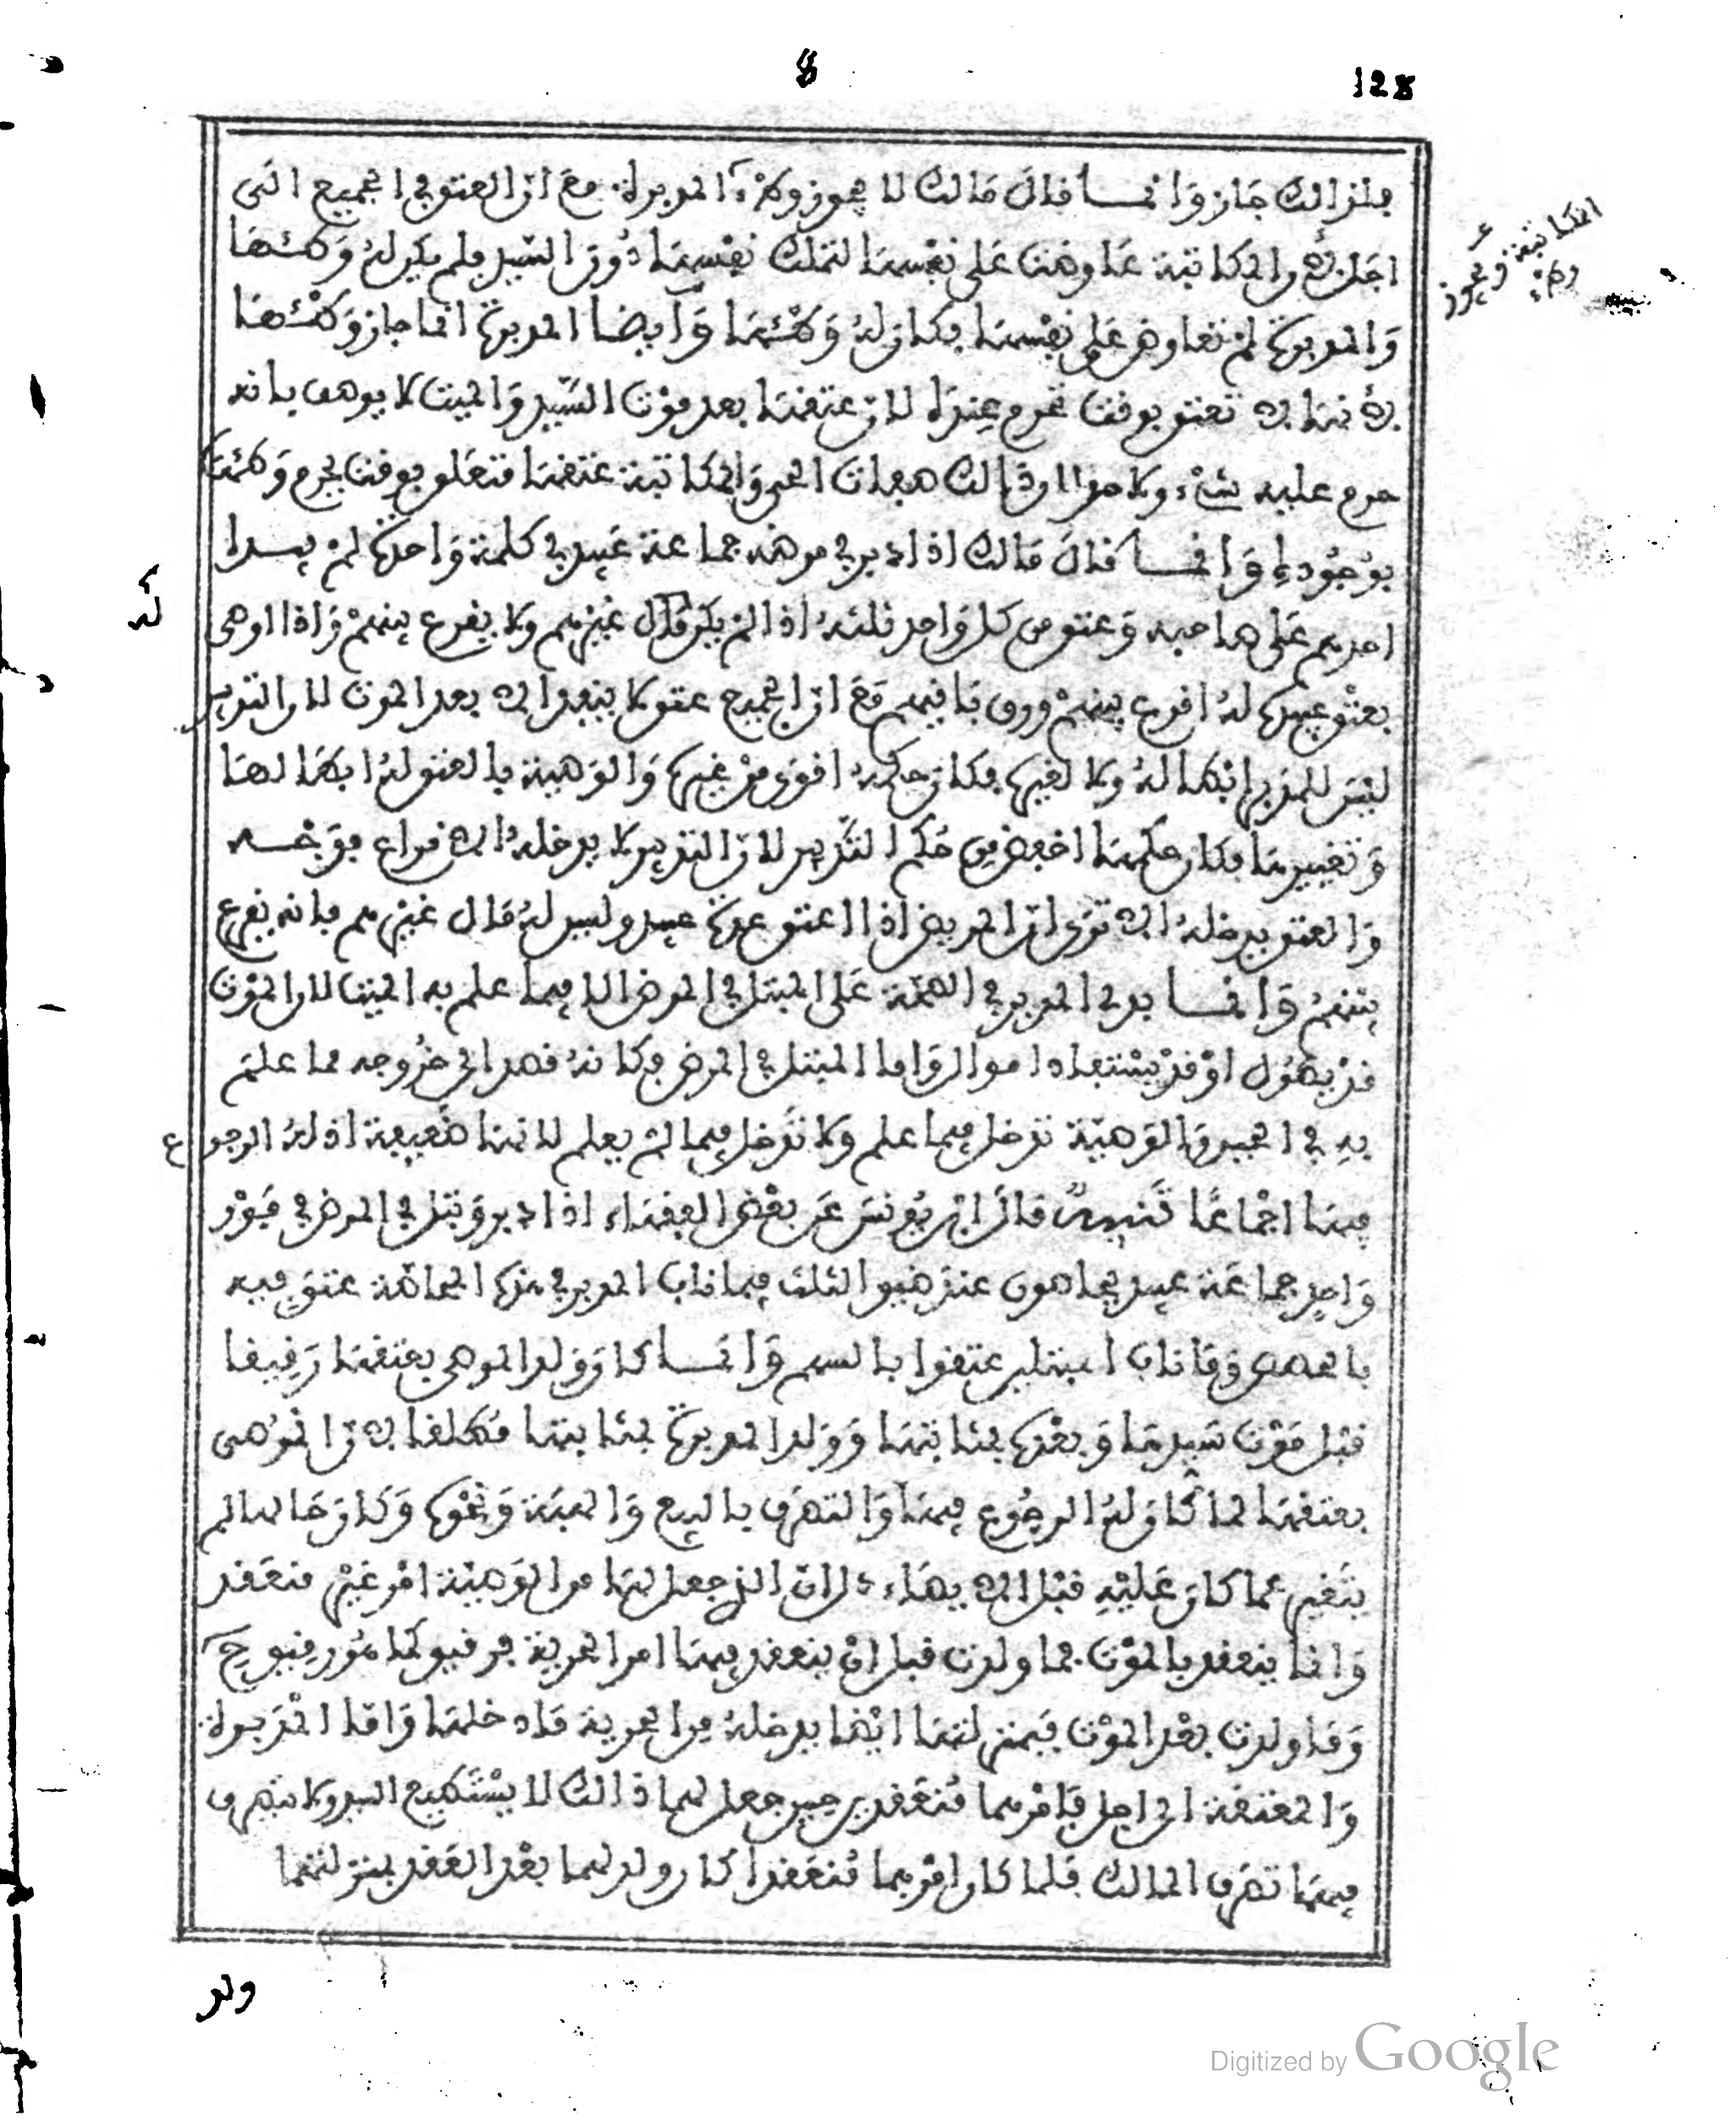 128
فلذالك جاز وَانمـــا قال مَالك لا يجوز وطءُ المدبرة مع انّ العتق في الجميع الى
المكاتبة ويجوز وطء
اجل لأن المكاتبة عاوضت عَلى نفسها لتملك نفسها دُونَ السّيد فلم يكن لهُ وَطئها
وَالمدبرة لمْ تعاوض عَلى نفسها فكان لهُ وَطْئها وَأيضا المدبرة انما جاز وَطْئها
لأنها لا تعتق بوقت تحرم عِندهُ لانّ عتقها بعد موْت السّيد وَالميت لا يوصف بانه
حرم عليه شيْء ولا هذا اذ ذالك صفات الحي وَالمكاتبة عتقها متعلق بوقت يحرم وَطئها
بوُجُودهِ وَانمـــا قالَ مَالك اذا دبر في مرضه جماعة عَبيد في كلمة وَاحدة لمْ يبدا
احدهم عَلى صاحبه وَعتق من كل وَاحد ثلثهُ اذا لمْ يكن لهُ مَال غيْرهم ولا يقرع بينهمْ وَاذا اوصى
بعتْق عبيدهِ لهُ اقرع بينهمْ ورق باقيهم مَعَ انّ الجميع عتق لا ينفذ الا بعد الموت لان التدبير
ليْسَ للمدبر ابْطاله ولا تغييره فكان حكمه اقوى منْ غيره وَالوَصية بالعتق لهُ ابطالها
وَتغييرها فكان حكمها اخفض مِن حُكم التّدبير لانّ التدبير لا يدخلهُ الاقراع بوَجْـــه
وَالعتق يدخلهُ الا ترَى انّ المريض اذا اعتق عدة عبيد وليس لهُ مَال غيْرهم فانه يقرع
بيْنهمْ وَانمـــا يدخل المدبر في الصّحة عَلى المبتل في المرض الا فيما علم به الميت لان الموْت
قدْ يطول اوْ قدْ يسْتفاد اموال وَاما المبتل في المرض فكانهُ قصد الى خرُوجه مما علمَ
بِهِ في الحين وَالوَصيّة تدخل فيما علم وَلا تدْخل فيما لمْ يعلم لانها ضَعيفة اذ لهُ الرجوع
فيها اجْماعًا تَنبيهٌ قال ابْن يُونسَ عَن بعْض الفقهاء اذا دبر وَبتل في المرض في فَوْر
وَاحِد جماعَة عبيد يتحاصون عندَ ضيق الثلث فيما ناب المدبر في هذه المحاصّة عتقَ فيه
بالحصص وَمَا ناب المبتلين عتقوا بالسهم وَانمـــا كانَ وَلد الموصى بعتقها رَقيقا
قبْل مَوْت سَيدها وَبعْده بمثابتها وَوَلد المدبرة بمثابتها مُطلقا لانّ الموْصى
بعتقها لما كانَ لهُ الرجُوع فيهَا وَالتصرّف بالبيع وَالهبَة وَنحْوه وَكانَ حَالها لم
يتَغير عما كانَ عَليْهِ قبْل الايصَاء لانّ الذي جعل لهَا من الوَصيّة امْر غيْر منعَقد
وَانما ينعقد بالموْت فما ولدت قبل انْ ينعقد فيها امر الحرية فرقيق كما هُوَ رقيق حَ
وَمَا ولدت بعْد الموْت فبمنزلتهَا ايْضا يدخلهُ مِن الحرية مَا دخلها وَامّا المدَبرة
وَالمعتقة الى اجل فامْرهما مُنعَقد من حِين جعل لهما ذالك لا يسْتطيع السيد ولا يتصرف
فيهَا تصَرف المالك فلما كان امْرهما مُنعَقدا كان ولدهما بعْد العَقد بمنزلتهما
ولو
Digitized by Google